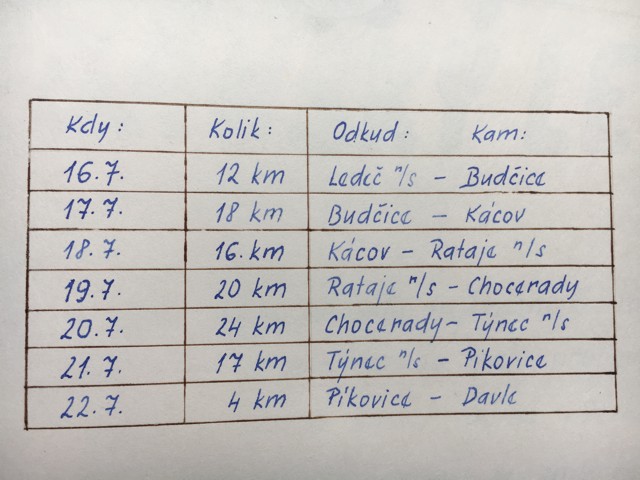 Kdy: Kolik: Odkud: Kam:
16.7. 12 km Ledeč n/s - Budčice
17.7. 18 km Budčice - Kácov
18.7. 16. km Kácov - Rataje n/s
19.7. 20 km Rataje n/s - Chocerady
20.7. 24 km Chocerady - Týnec n/s
21.7. 17 km Týnec n/s - Pikovice
22.7. 4 km Pikovice - Davle